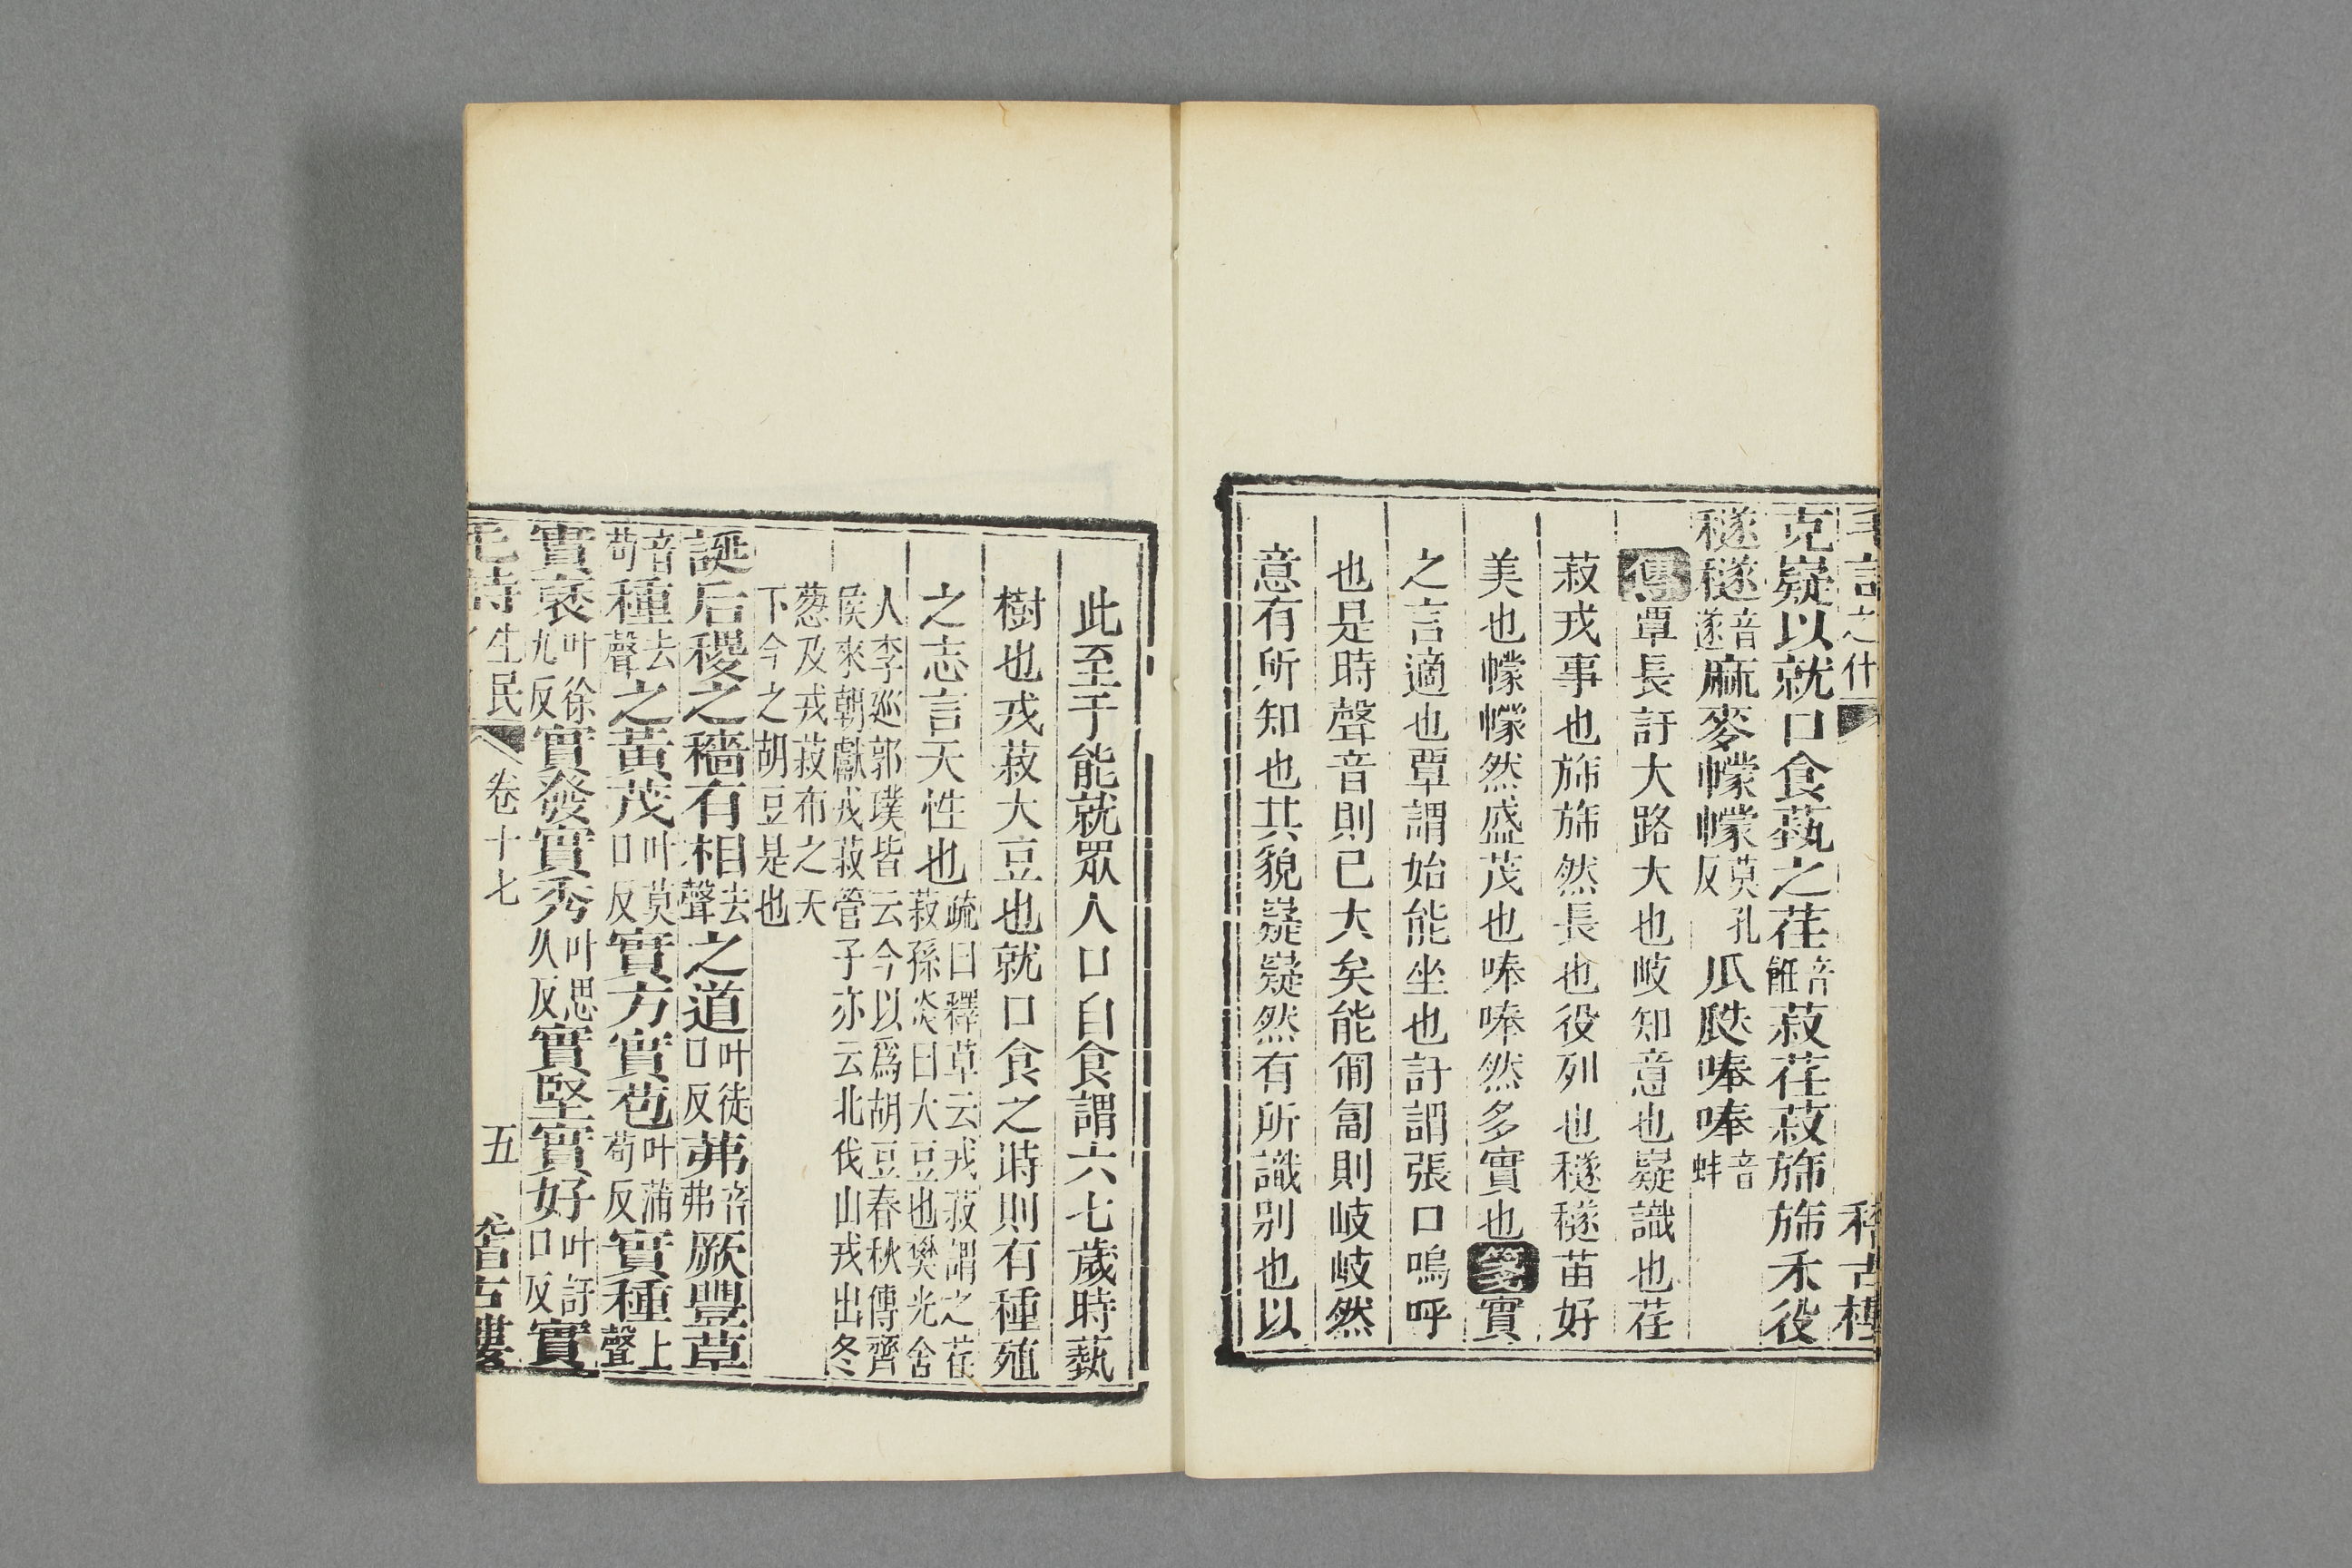 克嶷以就口食蓺之荏音飪菽荏菽旆旆禾役
穟穟音遂麻麥幪幪莫孔反瓜瓞唪唪音蚌
傳覃長訏大路大也岐知意也嶷識也荏
菽戎事也旆旆然長也役列也穟穟苗好
美也幪幪然盛茂也唪唪然多實也箋實
之言適也覃謂始能坐也訏謂張口嗚呼
也是時聲音則已大矣能匍匐則岐岐然
意有所知也其貌嶷嶷然有所識別也以
此至于能就眾人口自食謂六七歲時蓺
樹也戎菽大豆也就口食之時則有種殖
之志言天性也疏曰釋草云戎菽謂之荏菽孫炎曰大豆也樊光舍
人李巡郭璞皆云今以爲胡豆春秋傳齊侯來朝獻戎菽管子亦云北伐山戎出冬
葱及戎菽布之天下今之胡豆是也
誕后稷之穡有相去聲之道叶徒口反茀音弗厥豐草
音苟種去聲之黃茂叶莫口反實方實苞叶蒲苟反實種上聲
實褎叶徐九反實發實秀叶思久反實堅實好叶訏口反實
毛詩 生民 卷十七 五 稽古樓